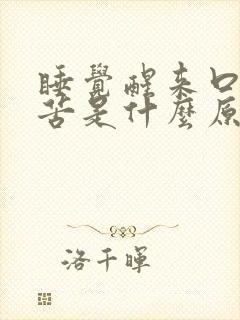 睡覺醒來口
苦是什麼原
洛千暉